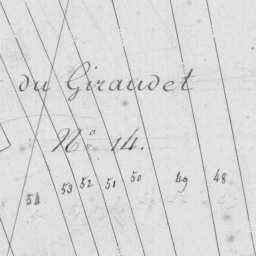 du Giraudet
N° 14.
54 53 52 51 50 49 48